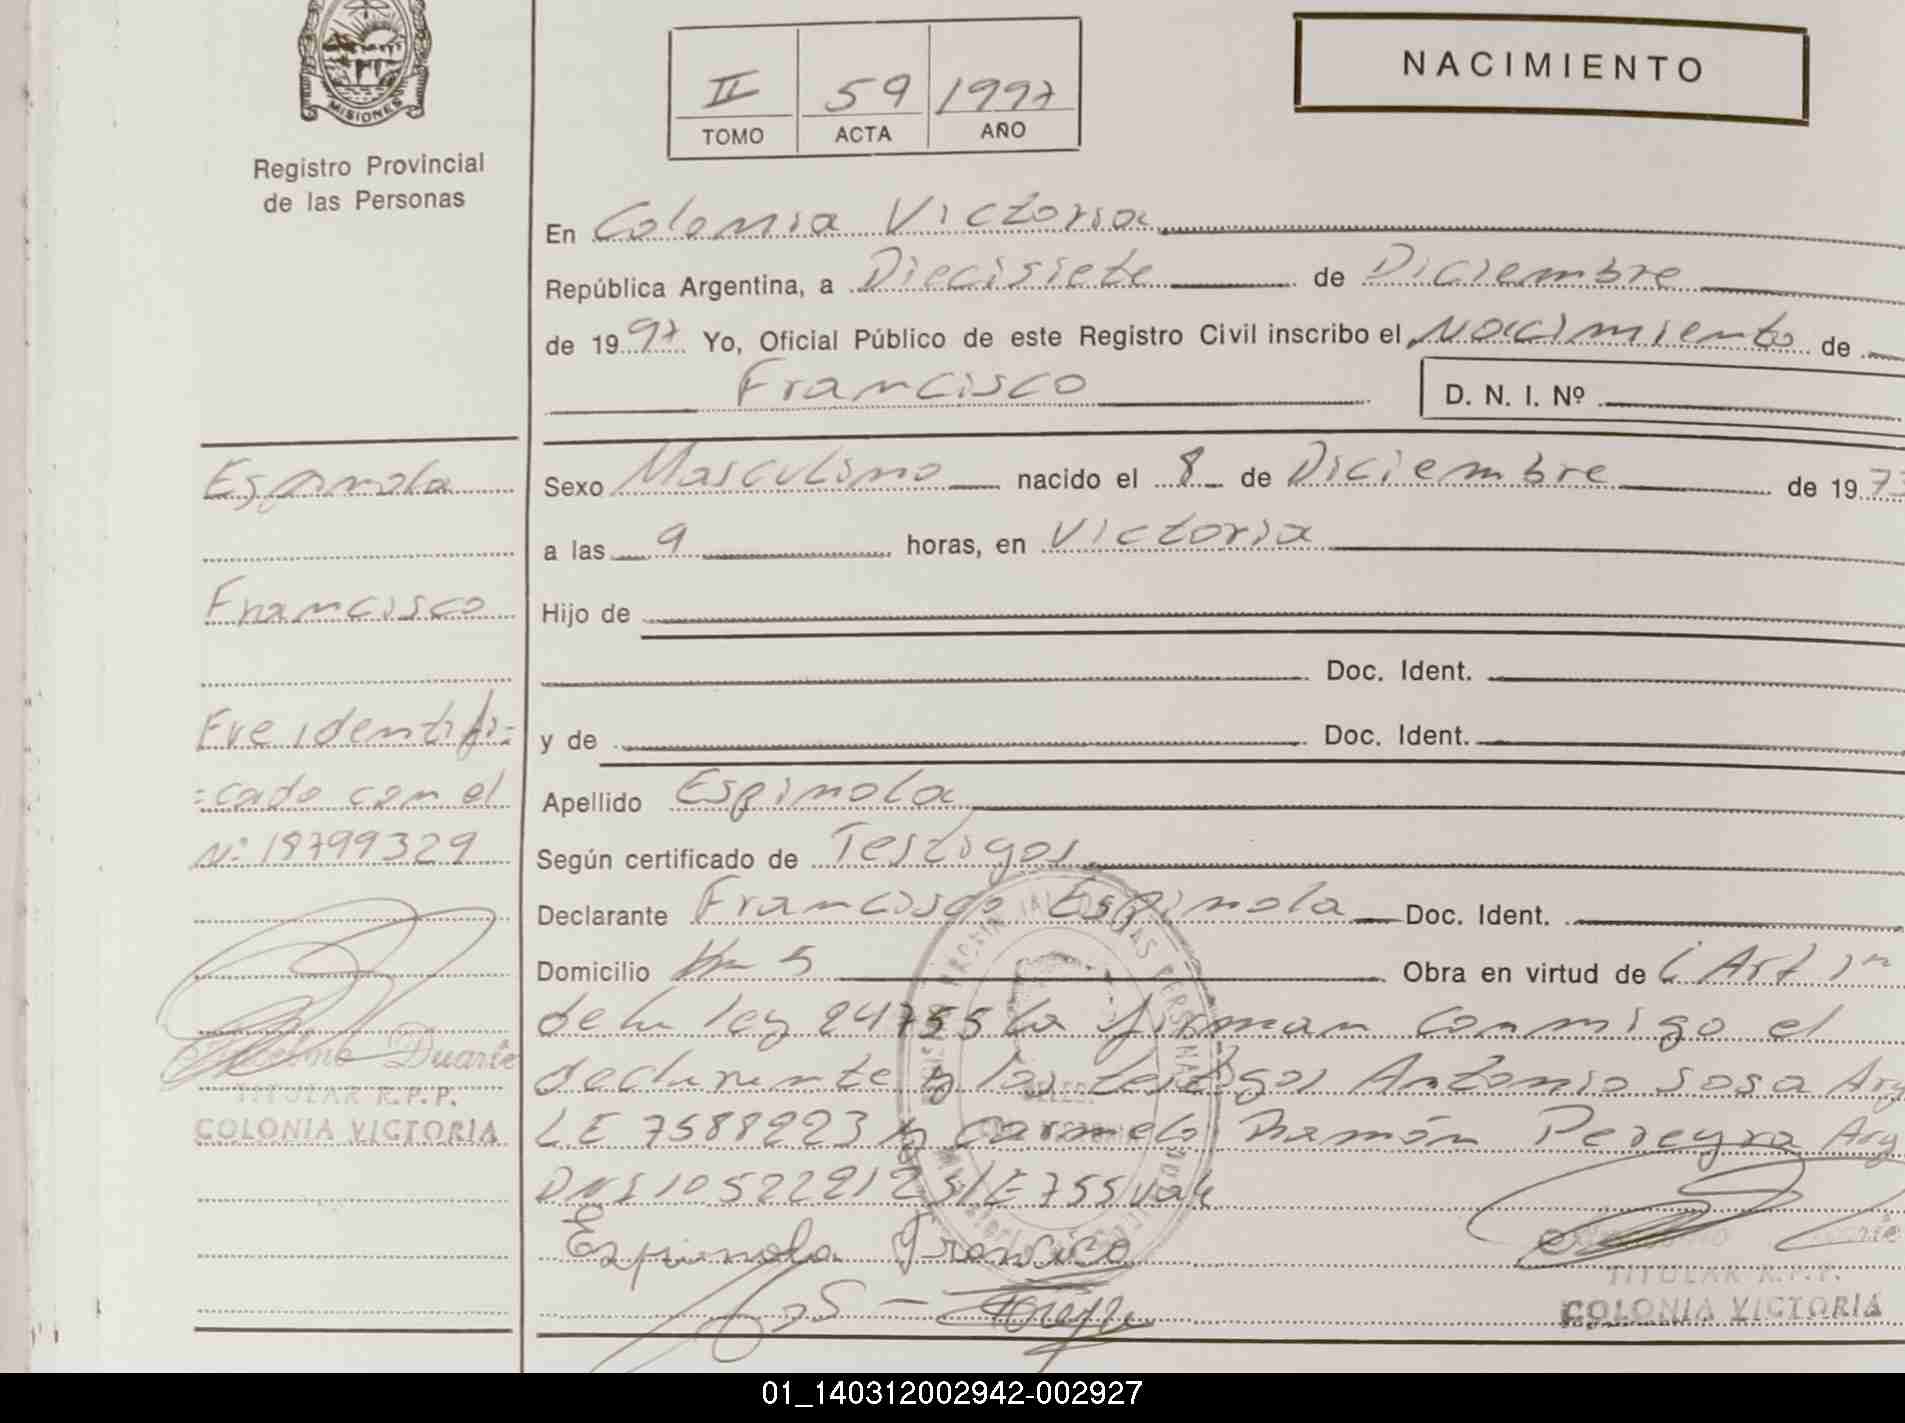 MISIONES
Registro Provincial
de las Personas
II 59 1997
TOMO ACTA AÑO
NACIMIENTO
En Colonia Victoria
República Argentina, a Diecisiete de Diciembre
de 1997 Yo, Oficial Público de este Registro Civil inscribo el Nacimiento de
Francisco D. N. I. Nº
Espinola
Sexo Masculino nacido el 8 de Diciembre de 1973
a las 9 horas, en Victoria
Francisco
Hijo de
Doc. Ident.
Fue identifi=
y de Doc. Ident.
=cado con el
Apellido Espinola
Nº 18799329
Según certificado de Testigos
Declarante Francisco Espinola Doc. Ident.
Domicilio Km 5 Obra en virtud de Art 1
de la ley 24755 la firman conmigo el
declarante y los testigos Antonio Sosa Arg
Duarte
TITULAR R.P.P.
COLONIA VICTORIA
LE 7588223 y Carmelo Ramón Pereyra Arg
DNI 10522912 S/E 755 vale
Espinola Francisco
TITULAR R.P.P.
COLONIA VICTORIA
01_140312002942-002927